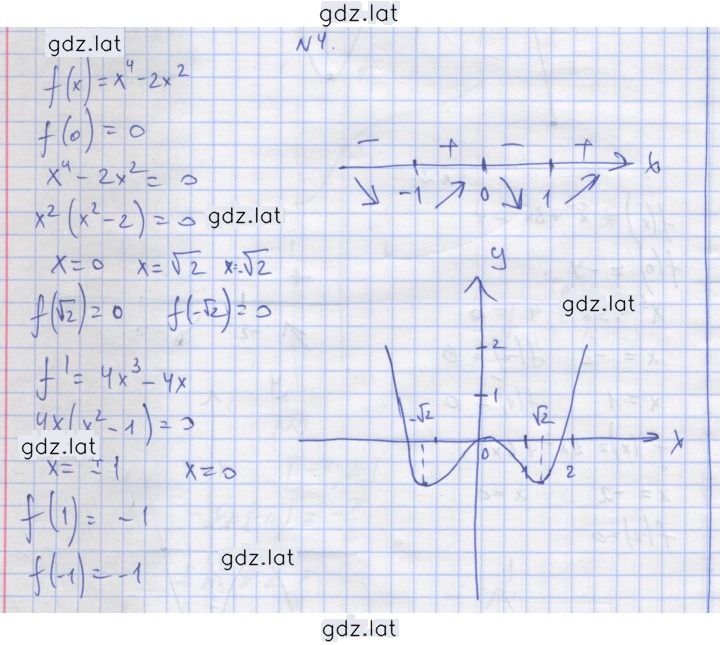 gdz.lat
gdz.lat
N4.
f(x) = x⁴ - 2x²
f(0) = 0
x⁴ - 2x² = 0
x² (x² - 2) = 0
gdz.lat
x = 0 x = √2 x = -√2
f(√2) = 0 f(-√2) = 0
f' = 4x³ - 4x
4x(x² - 1) = 0
gdz.lat
x = ±1 x = 0
f(1) = -1
f(-1) = -1
gdz.lat
- + - +
-1 0 1 x
y
gdz.lat
2
1
-√2 √2
0 2 x
gdz.lat